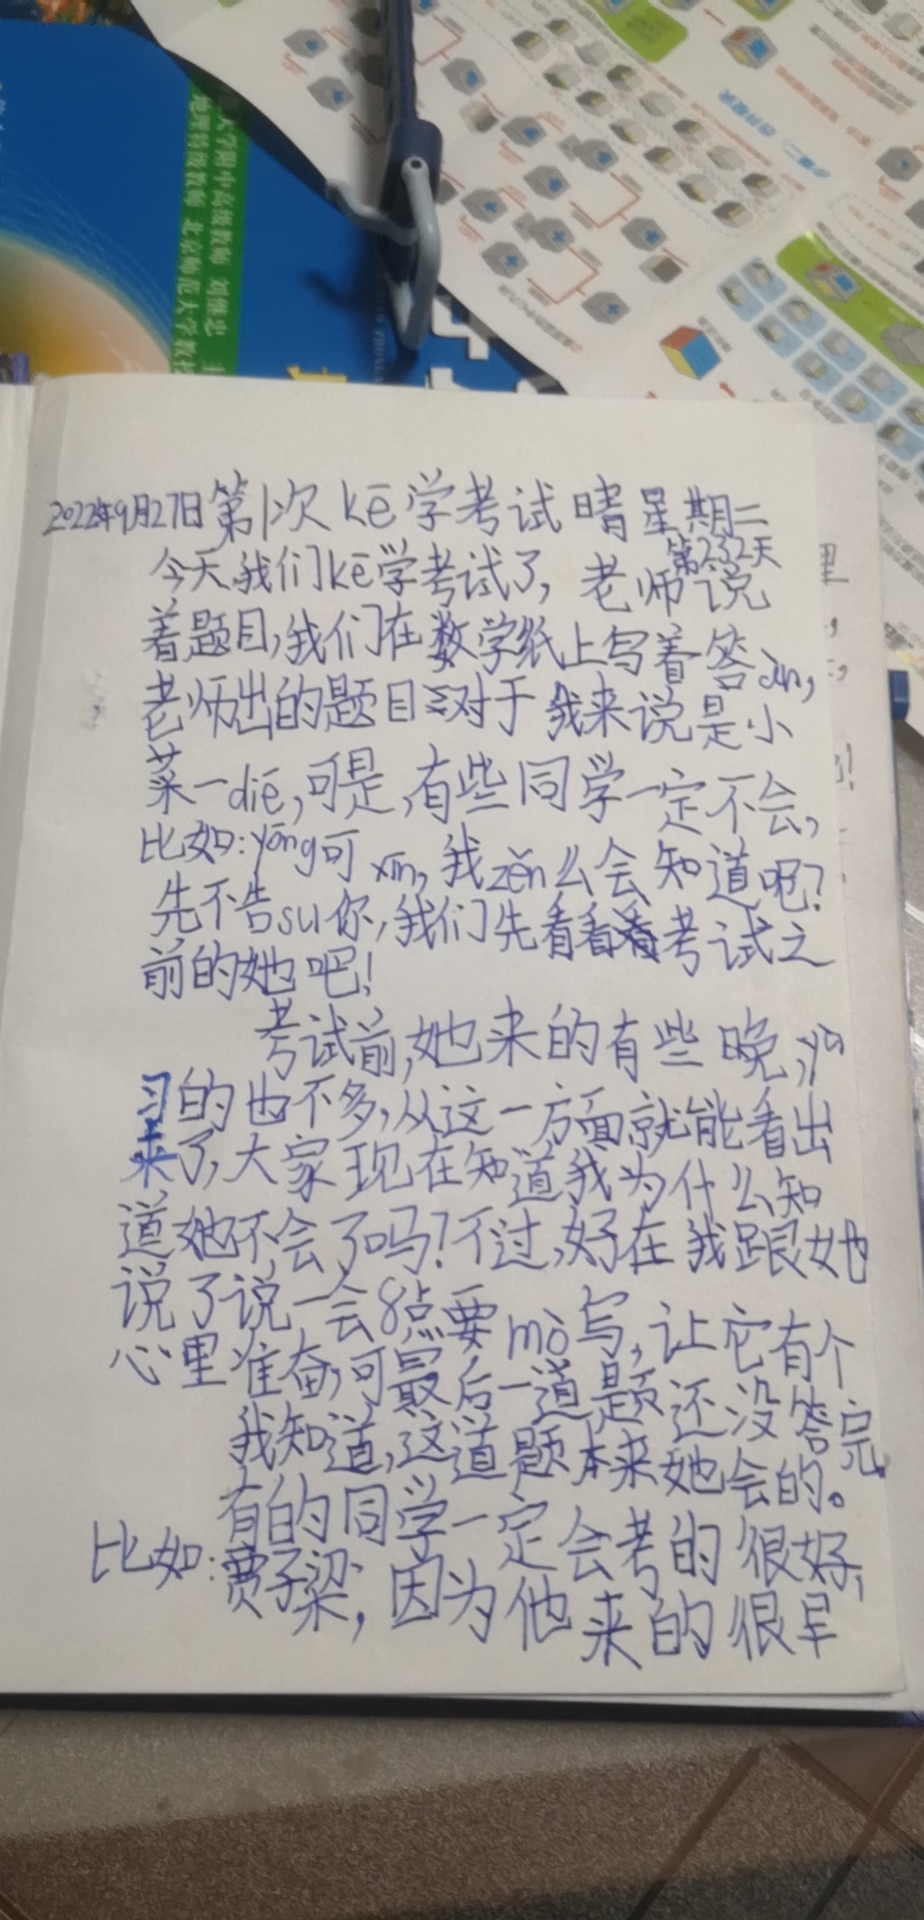 大学附中高级教师 刘继忠
地理特级教师 北京师范大学教
2022年9月27日 第1次kē学考试 晴 星期二
第232天
今天,我们kē学考试了,老师说
着题目,我们在数学纸上写着答àn,
老师出的题目对于我来说是小
菜一dié,可是,有些同学一定不会,
比如:yōng可xīn,我zěn么会知道呢?
先不告su你,我们先看看考试之
前的她吧!
考试前,她来的有些晚,yù
习的也不多,从这一方面就能看出
来了,大家现在知道我为什么知
道她不会了吗?不过,好在我跟她
说了说一会8点要mò写,让它有个
心里准奋,可最后一道题还没答完。
我知道,这道题本来她会的。
有的同学一定会考的很好,
比如:贾子梁,因为他来的很早